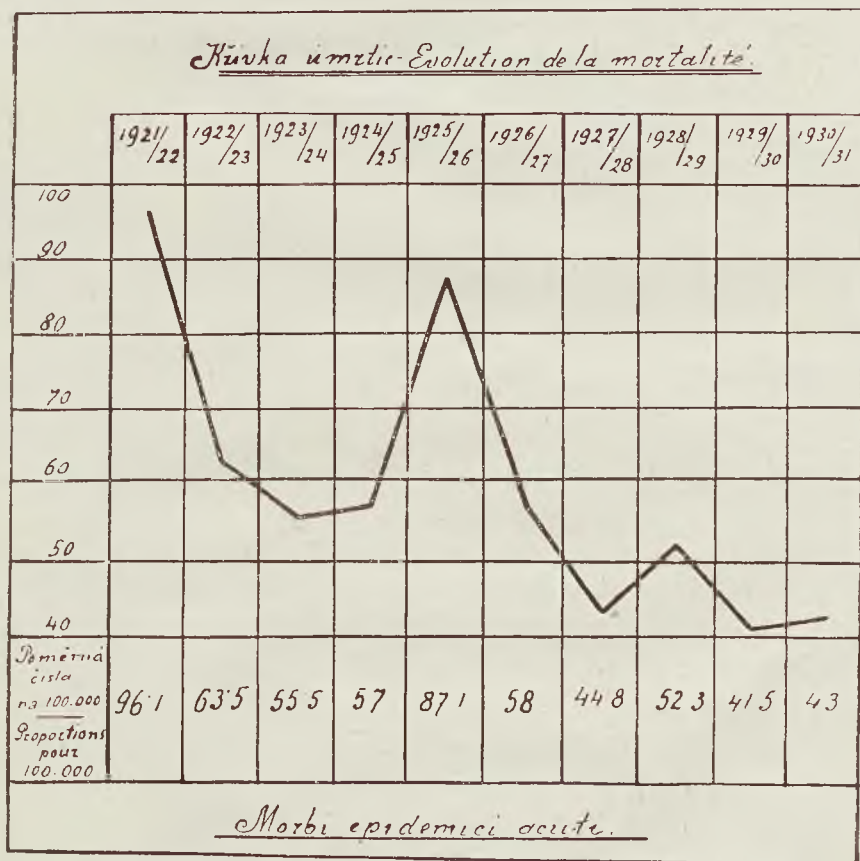 Křivka úmrtic-Evolution de la mortalité.
1921/22 1922/23 1923/24 1924/25 1925/26 1926/27 1927/28 1928/29 1929/30 1930/31
100
90
80
70
60
50
40
Poměrná
čísla
na 100.000
Proportions
pour
100.000
96·1 63·5 55·5 57 87·1 58 44·8 52·3 41·5 43
Morbi epidemici acuti.